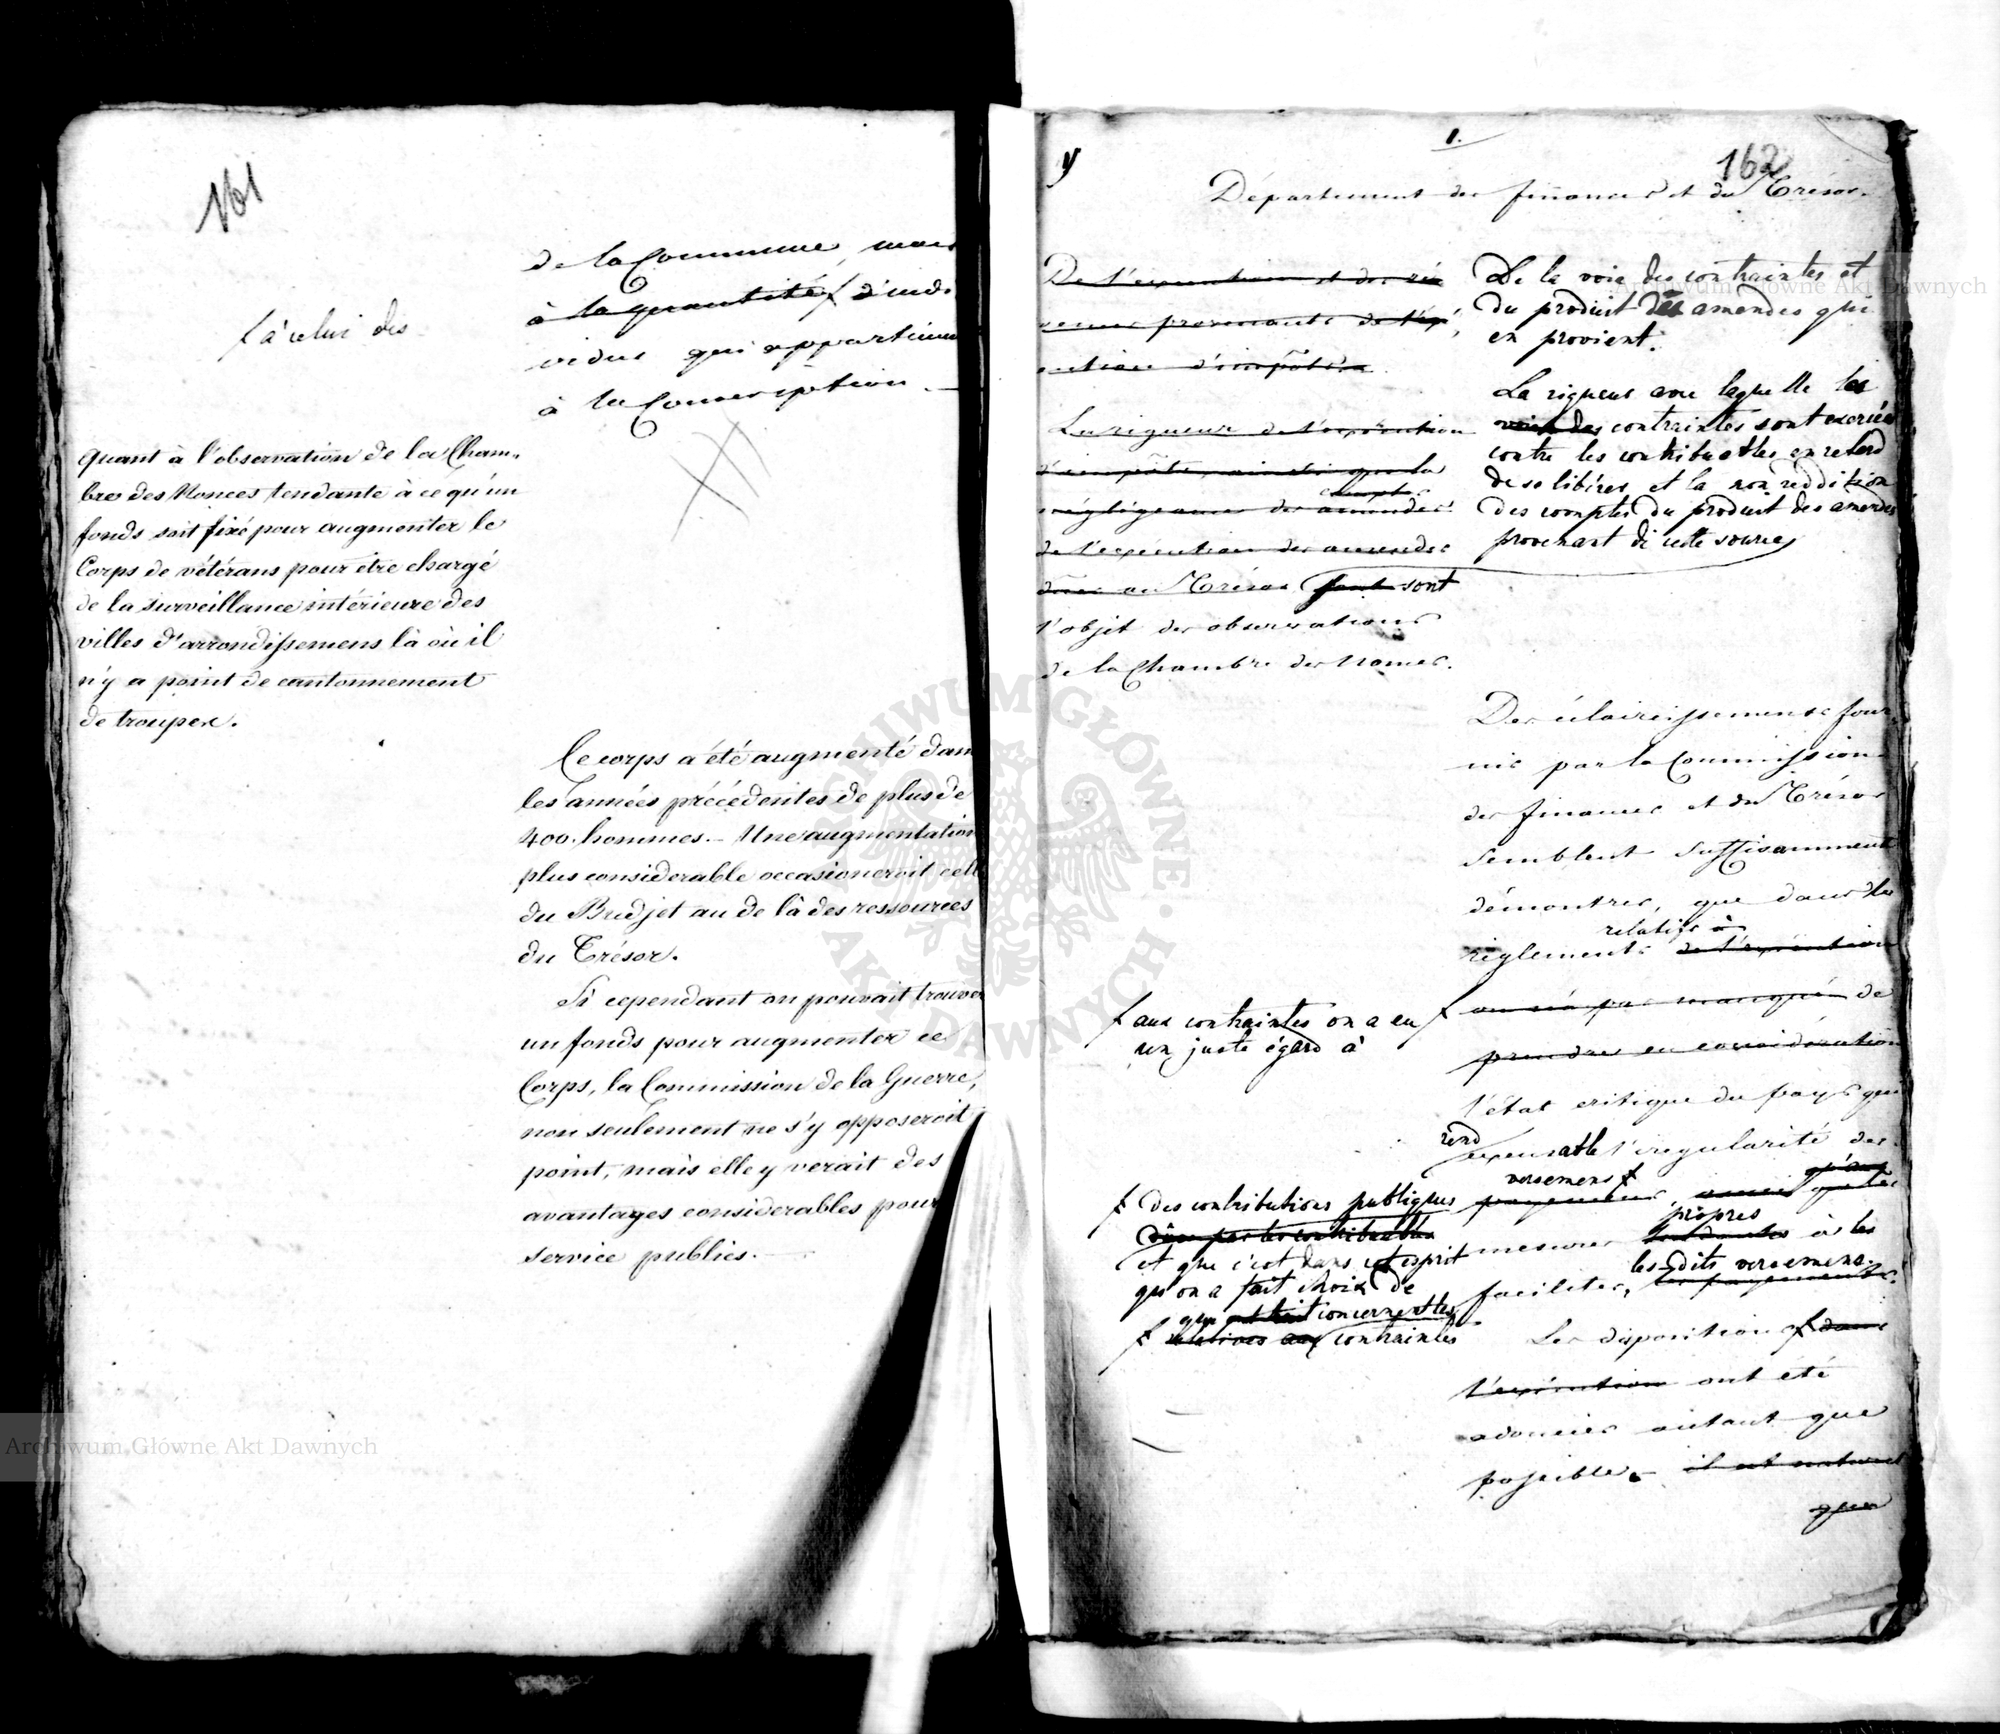 161
de la Commune, mais
à la quantité f d'indi
vidus qui appartienn
à la Conscription. —
f à celui des
quant à l'observation de la Cham-
bre des Nonces tendante à ce qu'un
fonds soit fixé pour augmenter le
Corps de vétérans pour être chargé
de la surveillance intérieure des
villes d'arrondissemens là où il
n'y a point de cantonnement
de troupes.
Ce corps a été augmenté dans
les années précédentes de plus de
400. hommes. – Une augmentation
plus considerable occasioneroit cell
du Budjet au de là des ressources
du Trésor.
Si cependant on pouvait trouver
un fonds pour augmenter ce
Corps, la Commission de la Guerre,
non seulement ne s'y opposeroit
point, mais elle y verait des
avantages considerables pour
service publics.
1.
162
Département des finances et du Trésor.
De l'exécution et des re
venus provenants de l'exé
cution d'impôts.
La rigueur de l'exécution
d'impôts, ainsi que la
comptes
négligeance des amendes
de l'exécution des amendes
dues au Trésor font sont
l'objet des observations
de la Chambre des Nonces.
De la voie des contraintes et
du produit des amendes qui
en provient.
La rigueur avec laquelle les
voies des contraintes sont exercées
contre les contribuables en retard
de se libérer et la non reddition
des comptes du produit des amendes
provenant de cette source
Des éclaircissemens four-
nis par la Commission
des finances et du Trésor
semblent suffisamment
démontrer, que dans les
relatifs à
règlements de l'exécution
on n'a pas manqué de
prendre en considération
f aux contraintes on a eu f
un juste égard à
l'état critique du pays qui
rend
excusable l'iregularité des
versemens f
payements, ainsi que les
propres
mesures tendantes à les
les-dits versemens.
faciliter, les payements.
f des contributions publiques
dûes par les contribuables
et que c'est dans cet esprit
qu'on a fait choix de
Les disposition f dans
que concernent les
f relatives aux contraintes
l'exécution ont été
adoucies autant que
possible. – il est naturel
que
Archiwum Główne Akt Dawnych
Archiwum Główne Akt Dawnych
ARCHIWUM GŁÓWNE AKT DAWNYCH